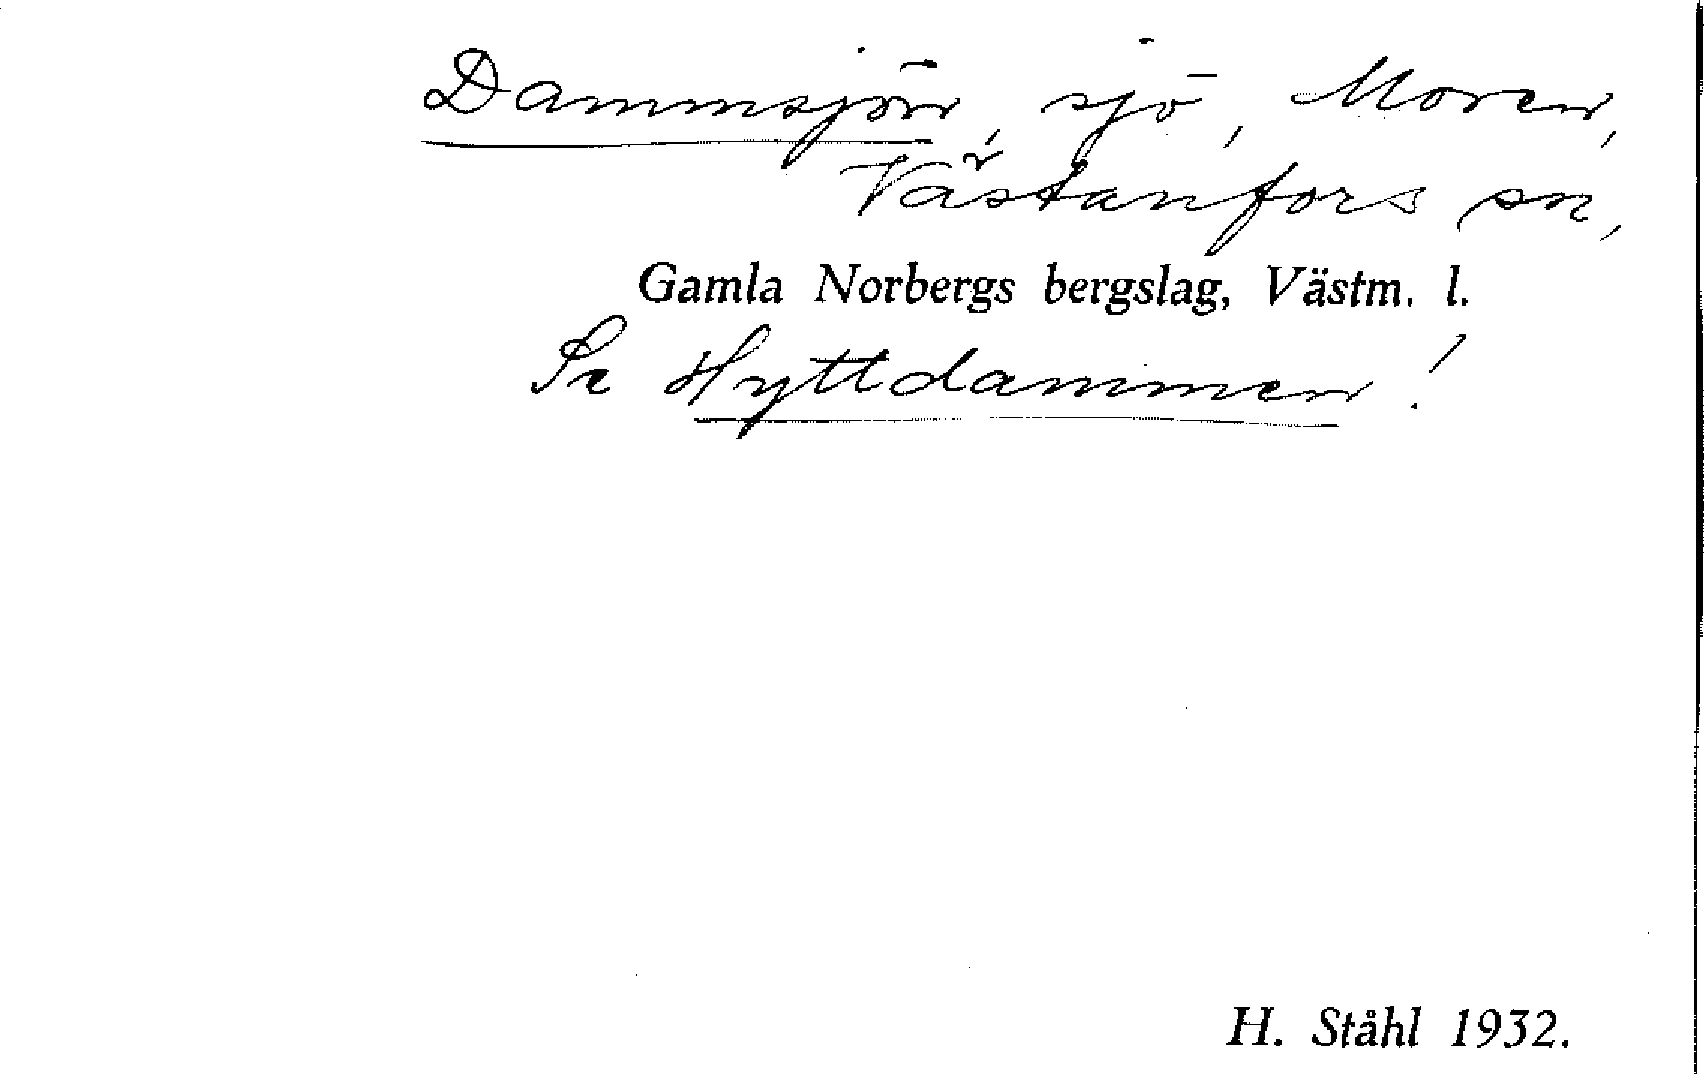 Dammsjön, sjö, Moren,
Västanfors sn,
Gamla Norbergs bergslag, Västm. l.
Se Hyttdammen!
H. Ståhl 1932.